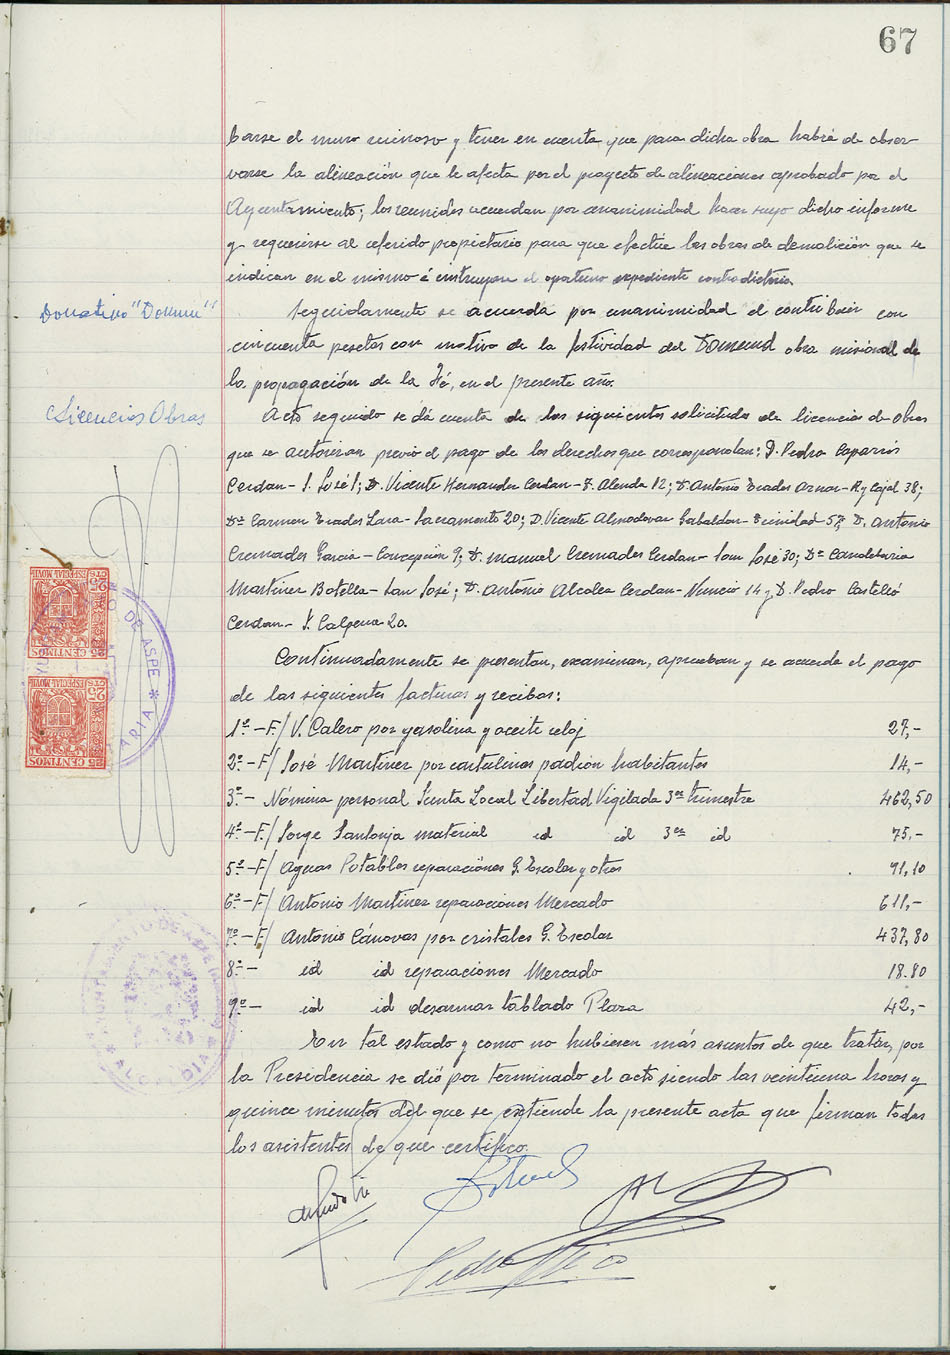 67
barse el muro ruinoso y tener en cuenta que para dicha obra habrá de obser-
varse la alineación que le afecta por el proyecto de alineaciones aprobado por el
Ayuntamiento; los reunidos acuerdan por unanimidad hacer suyo dicho informe
y requerirse al referido propietario para que efectúe las obras de demolición que se
indican en el mismo é instruyan el oportuno expediente contradictorio.
Donativo "Domund"
Seguidamente se acuerda por unanimidad el contribuir con
cincuenta pesetas con motivo de la festividad del Domund obra misional de
la propagación de la Fé, en el presente año.
Licencias Obras
Acto seguido se dá cuenta de las siguientes solicitudes de licencia de obras
que se autorizan previo el pago de los derechos que correspondan: D. Pedro Caparrós
Cerdan - S. José 1; D. Vicente Hernandez Cerdan - F. Alenda 12; D. Antonio Erades Aznar - R y Cajal 38;
Dª Carmen Erades Lara - Sacramento 20; D. Vicente Almodovar Gabaldon - Trinidad 57; D. Antonio
Cremades García - Concepción 9; D. Manuel Cremades Cerdan - San José 30; Dª Candelaria
Martinez Botella - San José; D. Antonio Alcolea Cerdan - Nuncio 14 y D. Pedro Castelló
Cerdan - P. Calpena 20.
Continuadamente se presentan, examinan, aprueban y se acuerda el pago
de las siguientes facturas y recibos:
1º - F/ V. Calero por gasolina y aceite reloj 27,-
2º - F/ José Martinez por cartulinas padrón habitantes 14,-
3º - Nómina personal Junta Local Libertad Vigilada 3er trimestre 462,50
4º - F/ Jorge Santonja material id id 3er id 75,-
5º - F/ Aguas Potables reparaciones G. Escolar y otros 91,10
6º - F/ Antonio Martinez reparaciones Mercado 611,-
7º - F/ Antonio Cánovas por cristales G. Escolar 437,80
8º - id id reparaciones Mercado 18.80
9º - id id desarmar tablado Plaza 42,-
En tal estado y como no hubiesen más asuntos de que tratar, por
la Presidencia se dió por terminado el acto siendo las veintiuna horas y
quince minutos del que se extiende la presente acta que firman todos
los asistentes de que certifico.
ESPECIAL MOVIL
25 CTS
25 CENTIMOS
ESPECIAL MOVIL
25 CTS
25 CENTIMOS
DE ASPE
AYUNTAMIENTO DE ASPE
ALCALDIA
Pedro Mico